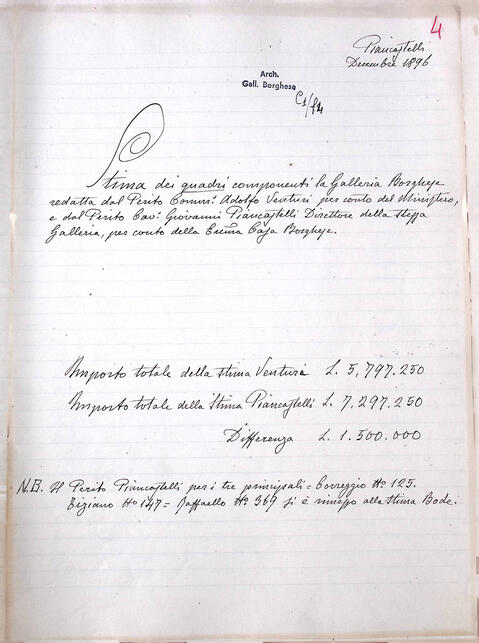 4
Piancastelli
Decembre 1896
Arch.
Gall. Borghese
C1/f4
Stima dei quadri componenti la Galleria Borghese
redatta dal Perito Comm: Adolfo Venturi per conto del Ministero,
e dal Perito Cav: Giovanni Piancastelli Direttore della stessa
Galleria, per conto della Ecc̃ma Casa Borghese.
Importo totale della stima Venturi L. 5,797.250
Importo totale della Stima Piancastelli L. 7,297.250
Differenza L. 1.500.000
N.B. Il Perito Piancastelli per i tre principali = Correggio No 125.
Tiziano No 147 = Raffaello No 369 si è rimesso alla stima Bode.